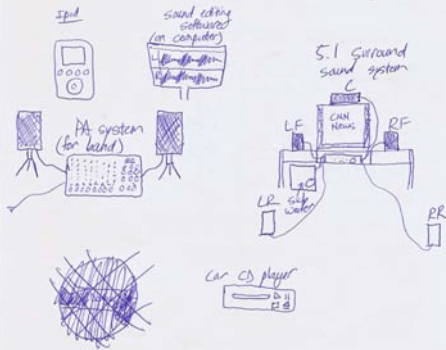 Ipod
sound editing
software
(on computer)
L
R
5.1 surround
sound system
C
CNN
News
LF
RF
PA system
(for band)
LR
sub
woofer
RR
Car CD player